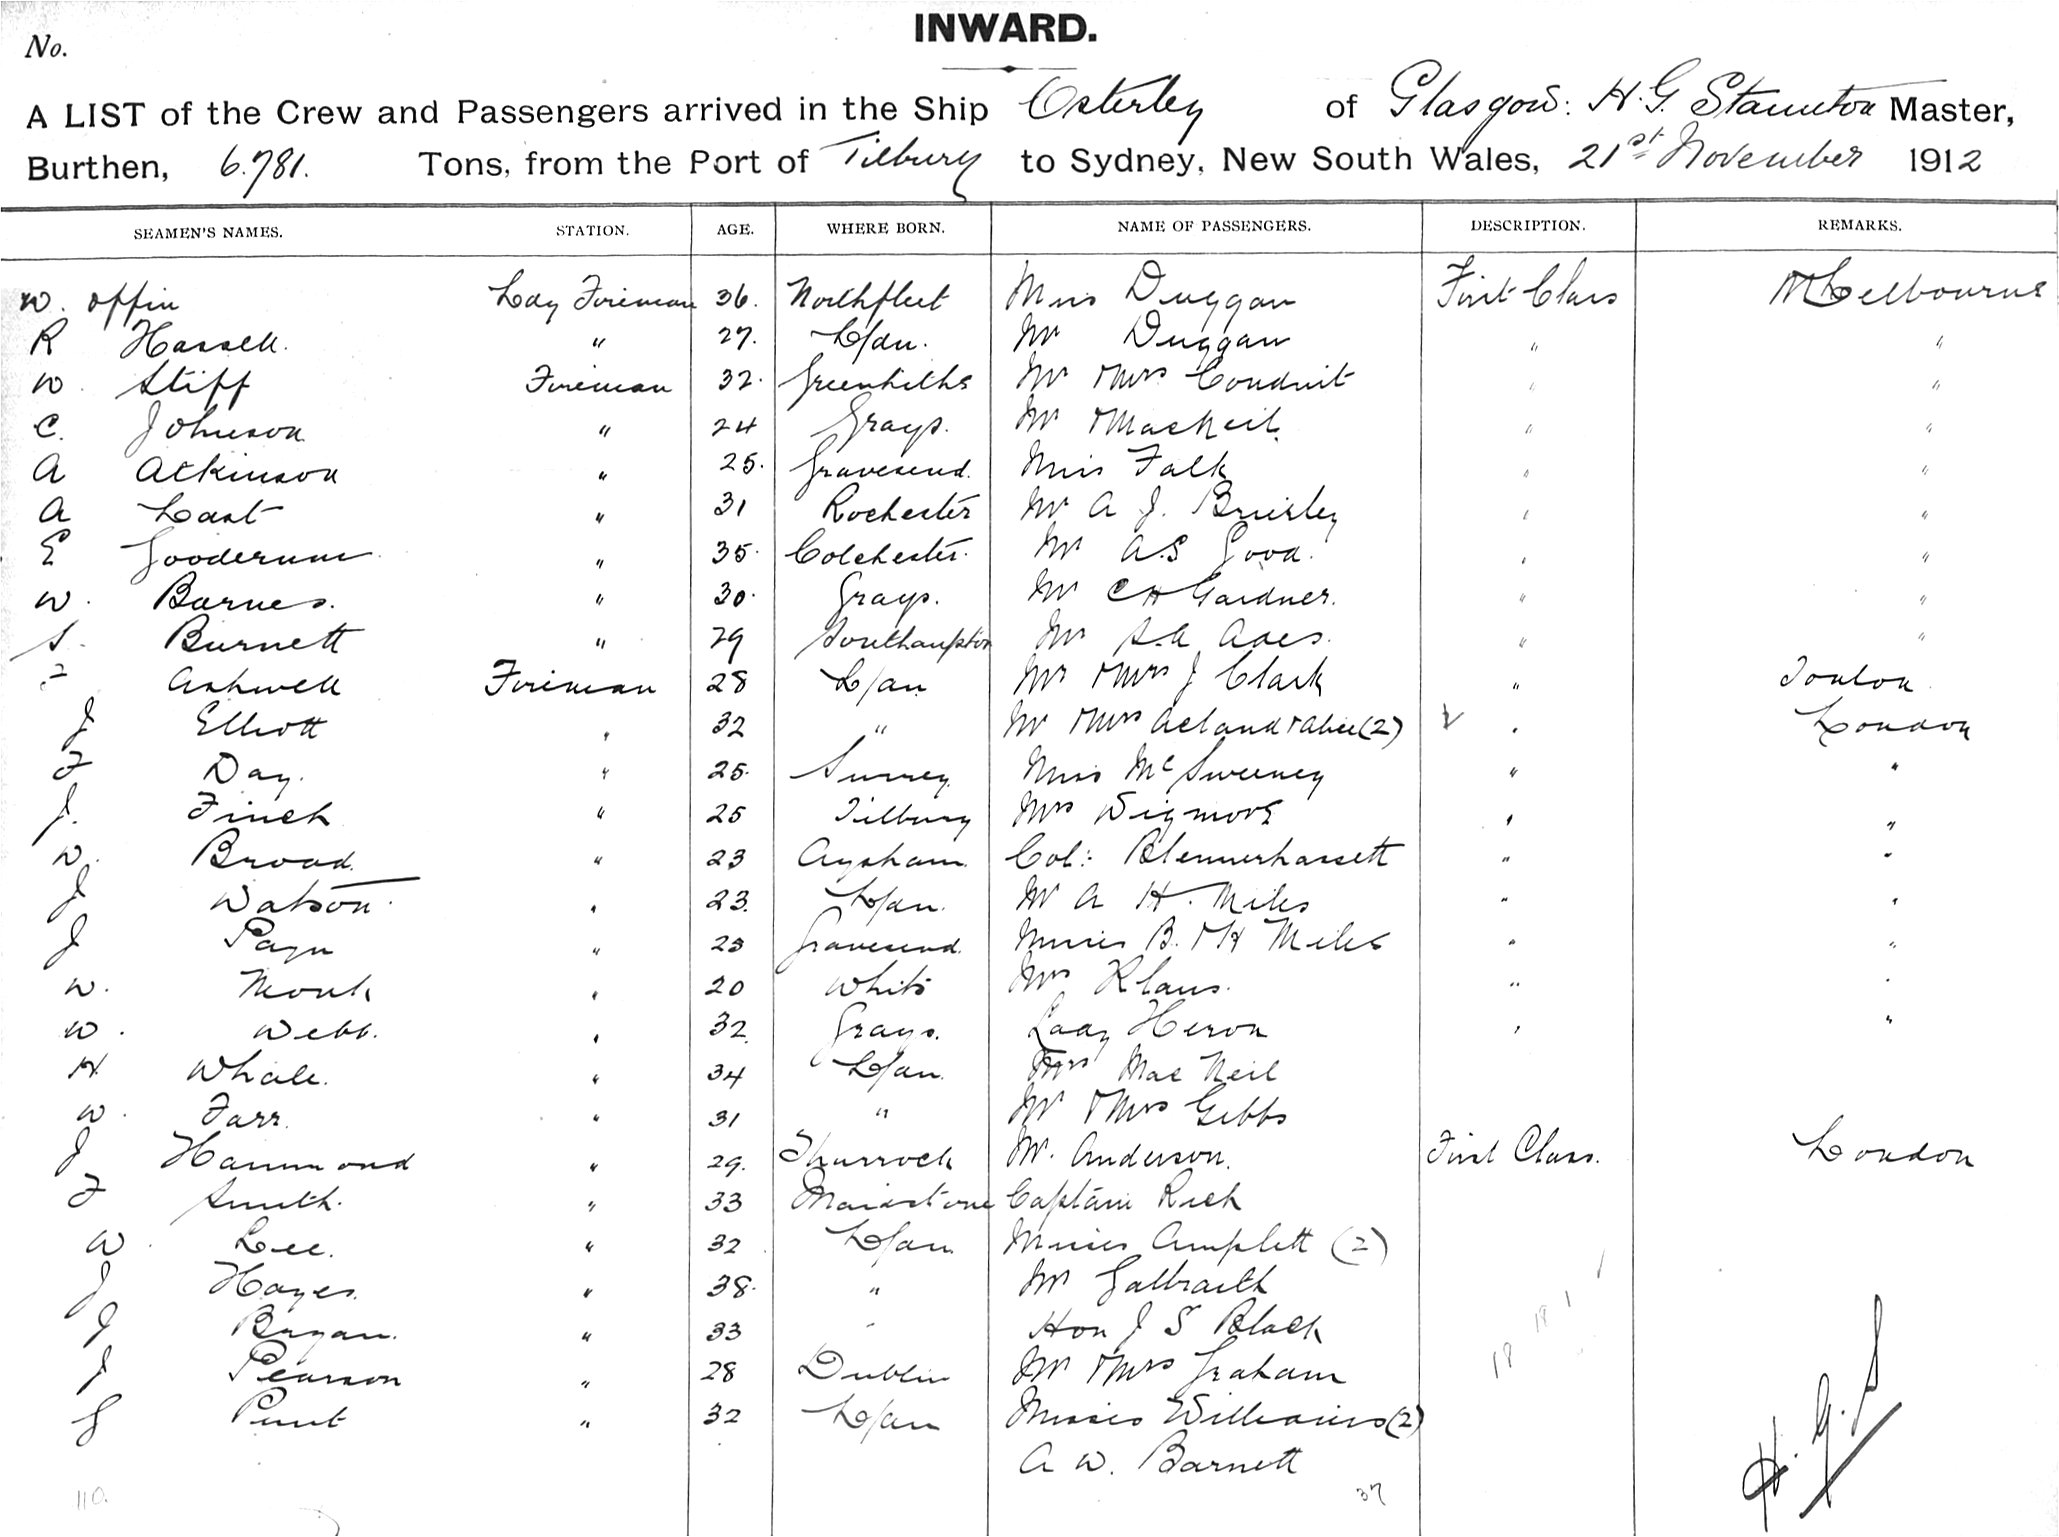 INWARD.
No.
A LIST of the Crew and Passengers arrived in the Ship Osterley of Glasgow: H. G. Staunton Master,
Burthen, 6.781. Tons, from the Port of Tilbury to Sydney, New South Wales, 21st November 1912
SEAMEN'S NAMES. STATION. AGE. WHERE BORN. NAME OF PASSENGERS. DESCRIPTION. REMARKS.
W. Offin Ldg Fireman 36. Northfleet Miss Duggan First Class Melbourne
R Hassell. " 27. L/dn. Mr Duggan " "
W Stiff Fireman 32. Greenhithe Mr & Mrs Conduit " "
C. Johnson " 24 Grays. Mr MacNeil. " "
A Atkinson " 25. Gravesend. Miss Falk " "
A Last " 31 Rochester Mr A J. Brierley " "
E Gooderum " 35. Colchester. Mr A.S Good. " "
W. Barnes. " 30. Grays. Mr C H Gardner. " "
S. Burnett " 29 Southampton Mr S.A Ades. " "
F Ashwell Fireman 28 L/dn Mr & Mrs J Clark " Toulon
J Elliott " 32 " Mr & Mrs Acland (2) " London
F Day. " 25. Surrey. Miss McSweeney " "
J. Finch " 25 Tilbury Mrs Wigmore " "
W. Broad. " 23 Col: Blennerhassett " "
J Watson " 23. L/dn. Mr A H. Miles " "
J Payn " 23 Gravesend. Misses B. & H Miles " "
W. Monk " 20 Mrs Klaus. " "
W. Webb. " 32 Grays. Lady Heron " "
H. Whale. " 34 L/dn. Mrs Mac Neil
W. Farr. " 31 " Mr & Mrs Gibbs
J Hammond " 29. Thurrock Mr. Anderson. First Class. London
F Smith. " 33 Maidstone Captain Rich
W. Lee. " 32 L/dn Misses Amplett (2)
J Hayes. " 38. " Mr Galbraith
J Bryan. " 33 " Hon J S Black
J Pearson " 28 Dublin Mr & Mrs Graham
G Punt " 32 L/dn Misses Williams (2)
A W. Barnett
110. 37
H. G. S